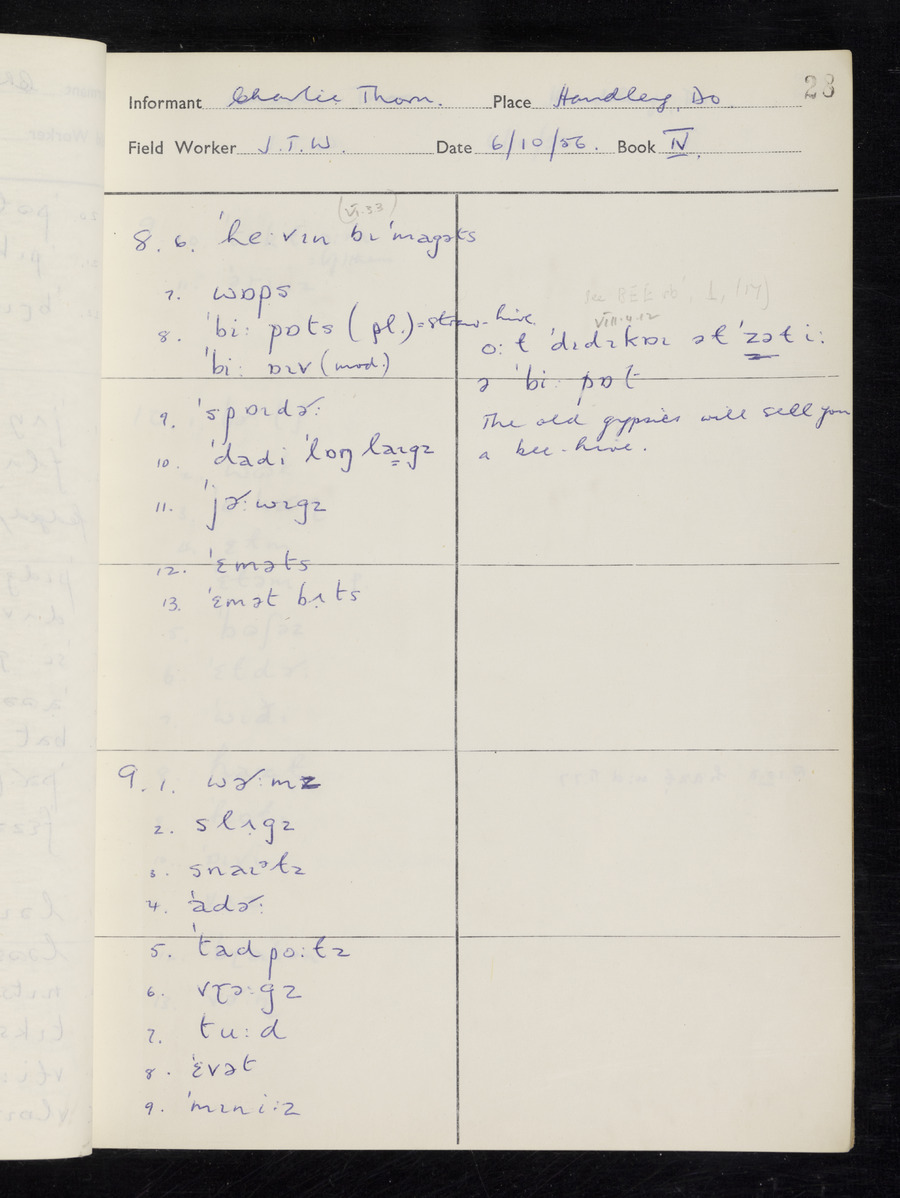 28
Informant Charlie Thorn. Place Handley, Do
Field Worker J.T.W. Date 6/10/56. Book IV.
(VI.33)
8. 6. ˈheːvɪn bɪˈmagəts
7. wɒps
8. ˈbiː pɒts (pl.) = straw-hive.
ˈbiː ɒɪv (mod.)
see BEE
VIII.4.12
oːɫ ˈdɪdɪkɒɪ əɫ ˈzəɫ iː
ə ˈbiː pɒt
The old gypsies will sell you
a bee-hive.
9. ˈspɒɪdɚː
10. ˈdadi ˈlɒŋ laɪgz
11. ˈjɚːwɪgz
12. ˈɛməts
13. ˈɛmət bɪts
9. 1. wɚːmz
2. slʌgz
3. snaɪᵊɫz
4. ˈadɚː
5. ˈtadpoːɫz
6. vɽɔːgz
7. tuːd
8. ˈɛvət
9. ˈmɪniːz